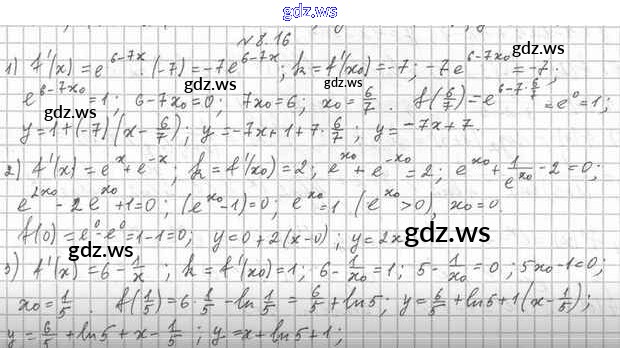 gdz.ws
№ 8.16
1) f'(x) = e^{6-7x}·(-7) = -7e^{6-7x}; k = f'(x₀) = -7; -7e^{6-7x₀} = -7;
gdz.ws gdz.ws
e^{6-7x₀} = 1; 6-7x₀ = 0; 7x₀ = 6; x₀ = 6/7. f(6/7) = e^{6-7·6/7} = e⁰ = 1;
gdz.ws gdz.ws
y = 1+(-7)(x - 6/7); y = -7x+1+7·6/7; y = -7x+7.
2) f'(x) = e^x + e^{-x}; k = f'(x₀) = 2; e^{x₀} + e^{-x₀} = 2; e^{x₀} + 1/e^{x₀} - 2 = 0;
gdz.ws gdz.ws
e^{2x₀} - 2e^{x₀} + 1 = 0; (e^{x₀} - 1) = 0; e^{x₀} = 1 (e^{x₀} > 0), x₀ = 0.
f(0) = e⁰ - e⁰ = 1-1 = 0; y = 0+2(x-0); y = 2x
gdz.ws
3) f'(x) = 6 - 1/x; k = f'(x₀) = 1; 6 - 1/x₀ = 1; 5 - 1/x₀ = 0; 5x₀-1 = 0;
gdz.ws gdz.ws
x₀ = 1/5. f(1/5) = 6·1/5 - ln 1/5 = 6/5 + ln5; y = 6/5 + ln5 + 1(x - 1/5);
y = 6/5 + ln5 + x - 1/5; y = x + ln5 + 1;
gdz.ws